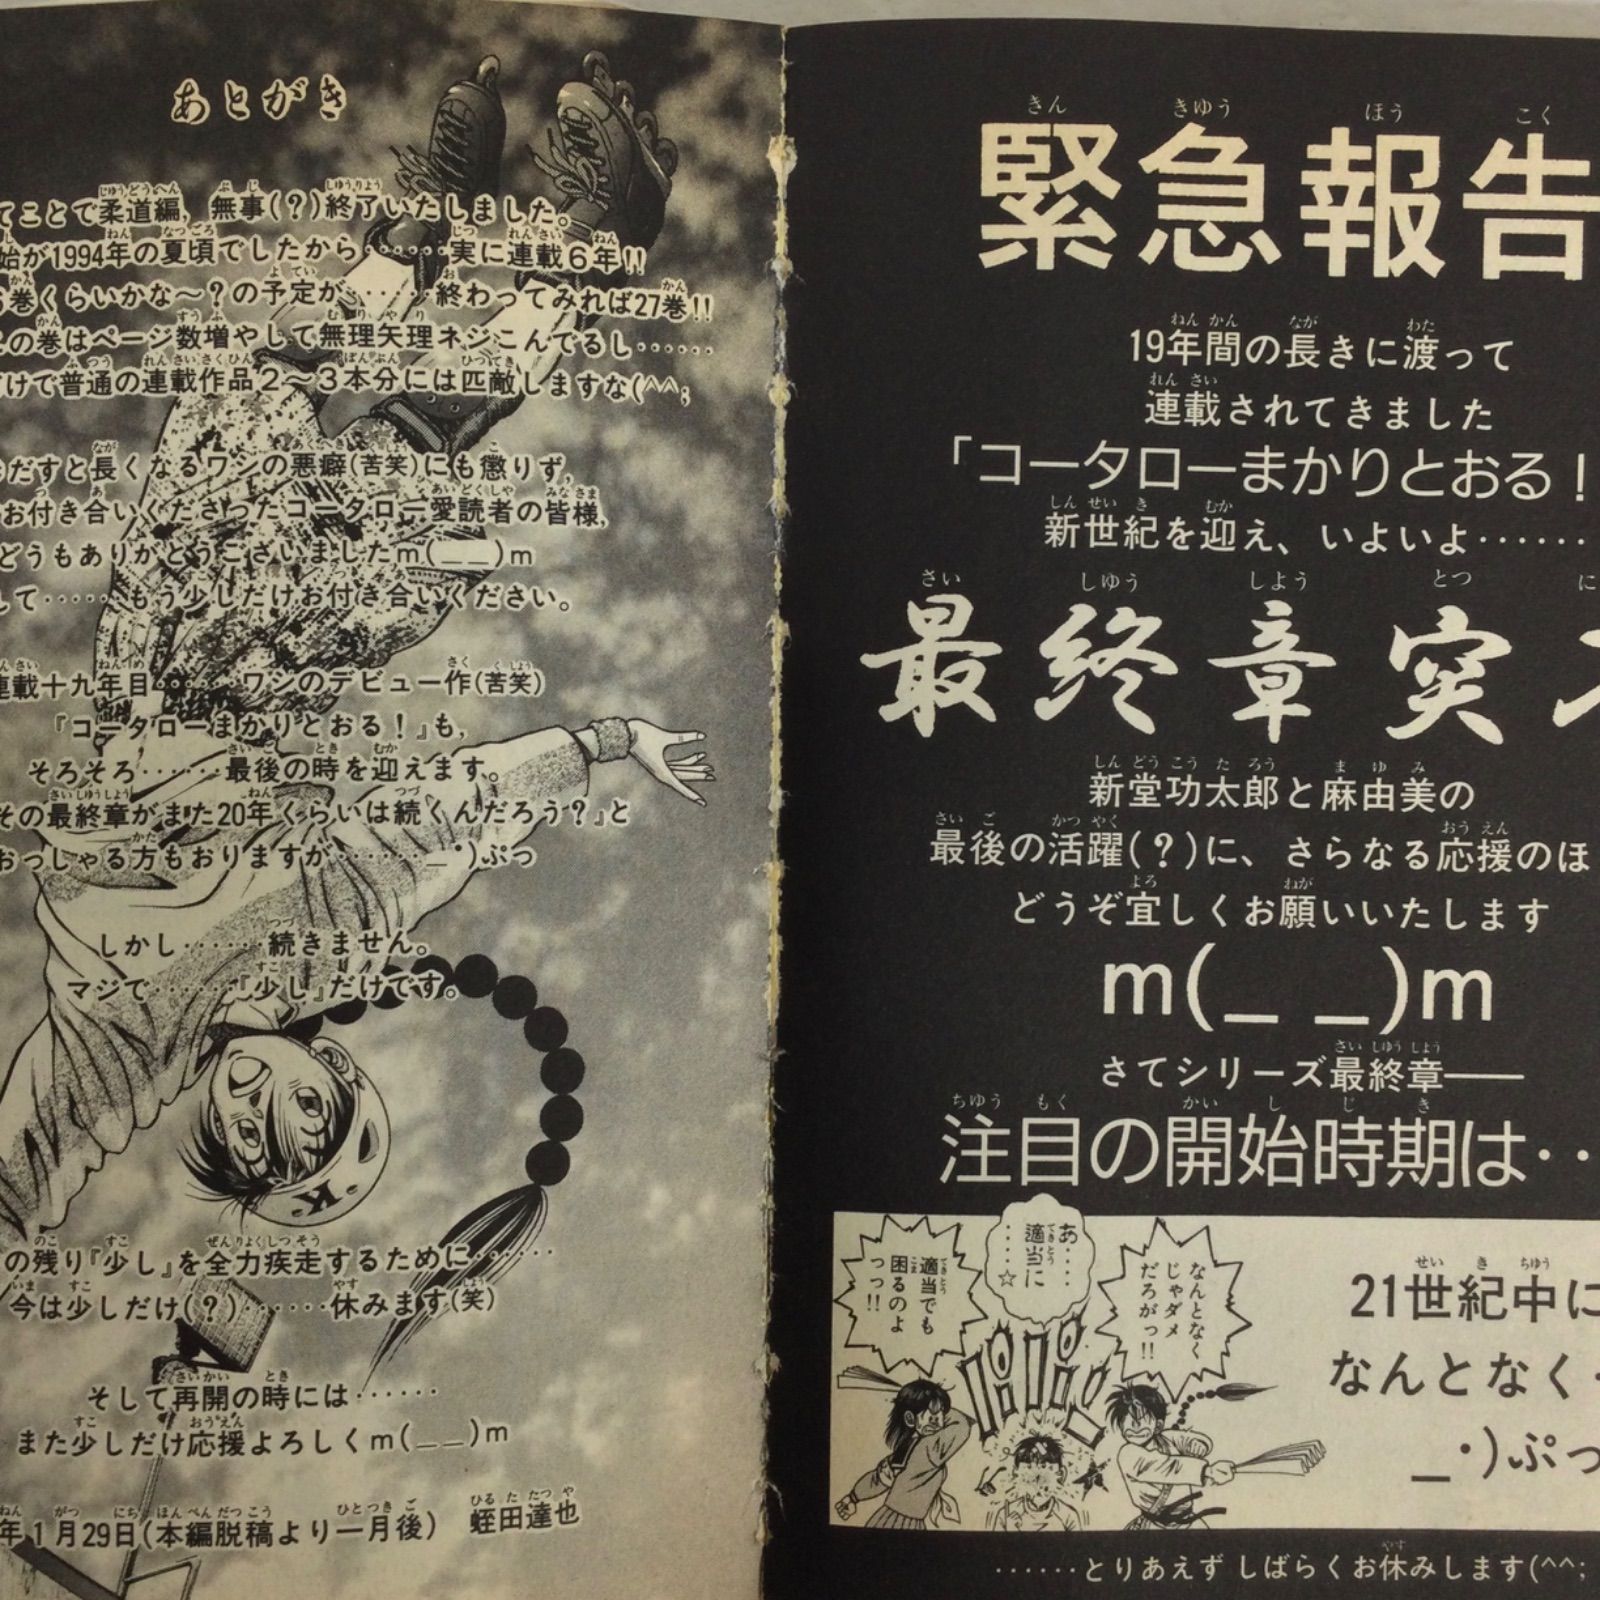 あとがき
てことで柔道編，無事(？)終了いたしました。
始が1994年の夏頃でしたから……実に連載6年!!
巻くらいかな～？の予定が……終わってみれば27巻!!
の巻はページ数増やして無理矢理ネジこんでるし……
だけで普通の連載作品2～3本分には匹敵しますな(^^;
だすと長くなるワシの悪癖(苦笑)にも懲りず，
お付き合いくださったコータロー愛読者の皆様，
どうもありがとうございましたm(__)m
して……もう少しだけお付き合いください。
連載十九年目……ワシのデビュー作(苦笑)
『コータローまかりとおる！』も，
そろそろ……最後の時を迎えます。
その最終章がまた20年くらいは続くんだろう？』と
おっしゃる方もおりますが……_・)ぷっ
しかし……続きません。
マジで……『少し』だけです。
の残り『少し』を全力疾走するために……
今は少しだけ(？)……休みます(笑)
そして再開の時には……
また少しだけ応援よろしくm(__)m
年1月29日(本編脱稿より一月後)　蛭田達也
緊急報告
19年間の長きに渡って
連載されてきました
「コータローまかりとおる！
新世紀を迎え、いよいよ……
最終章突
新堂功太郎と麻由美の
最後の活躍(？)に、さらなる応援のほ
どうぞ宜しくお願いいたします
m(_ _)m
さてシリーズ最終章――
注目の開始時期は‥
なんとなく
じゃダメ
だろがっ!!
あ……
適当に
……☆
適当でも
困るのよ
っっ!!
21世紀中に
なんとなく‥
_・)ぷっ
……とりあえず しばらくお休みします(^^;